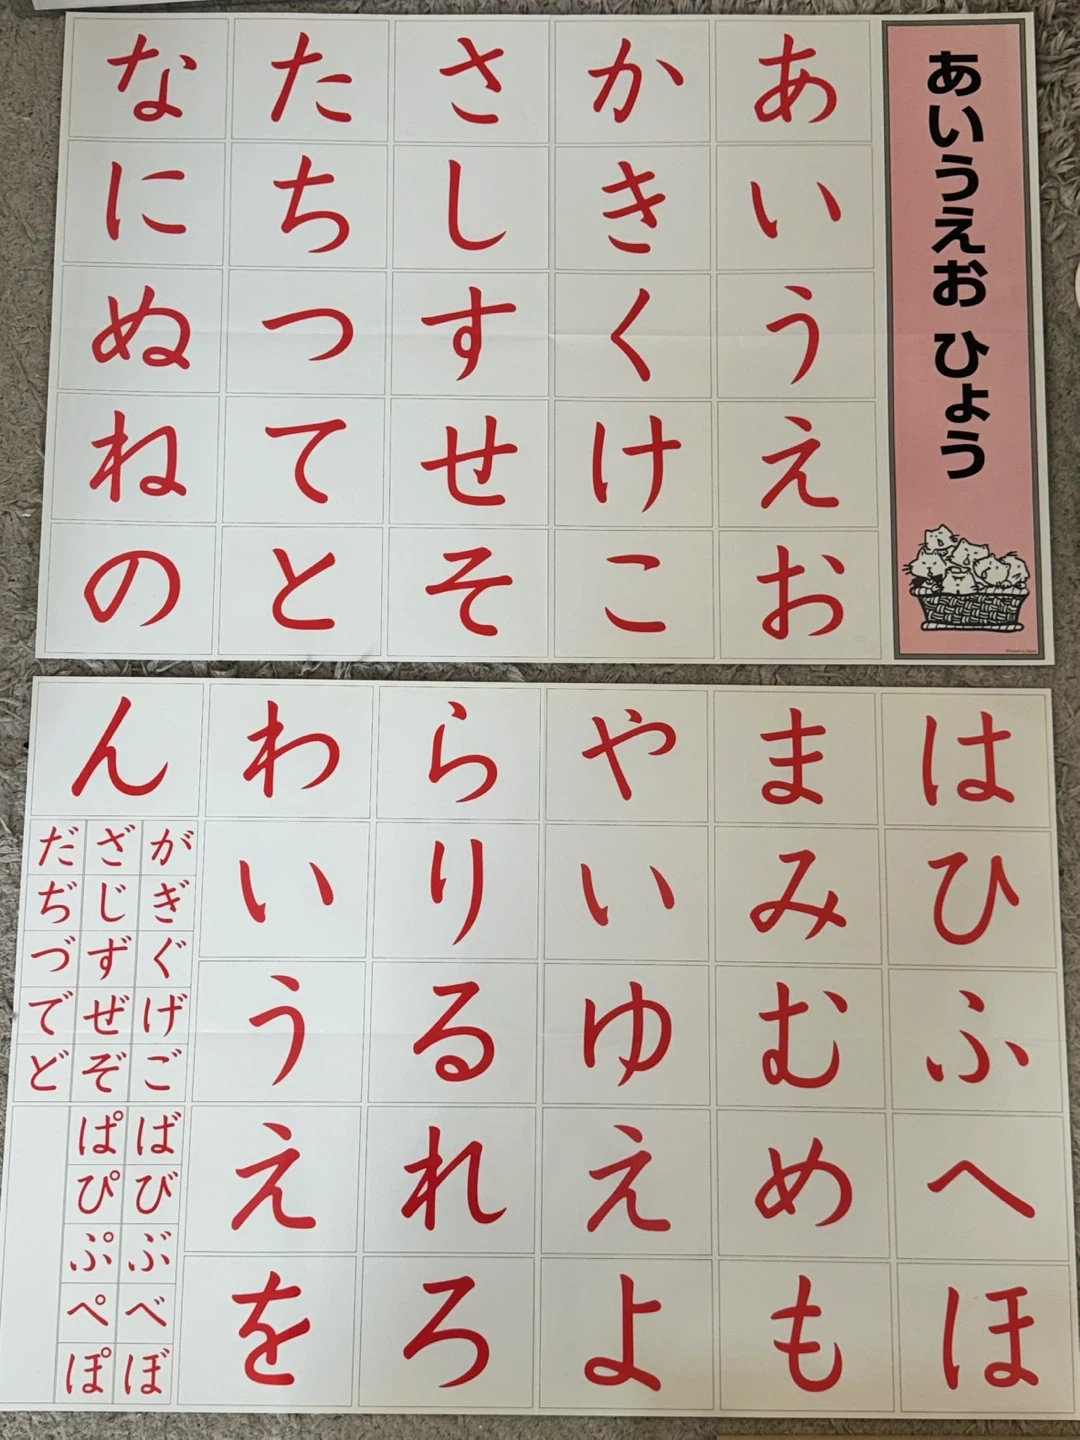 あいうえお ひょう
あいうえお
かきくけこ
さしすせそ
たちつてと
なにぬねの
はひふへほ
まみむめも
やいゆえよ
らりるれろ
わいうえを
ん
がぎぐげご
ざじずぜぞ
だぢづでど
ばびぶべぼ
ぱぴぷぺぽ